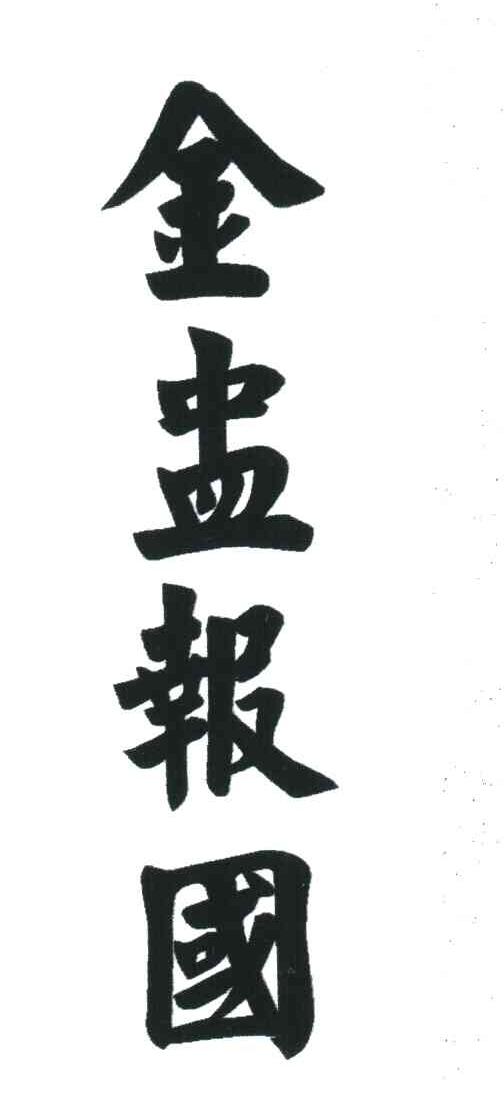 金盅報國